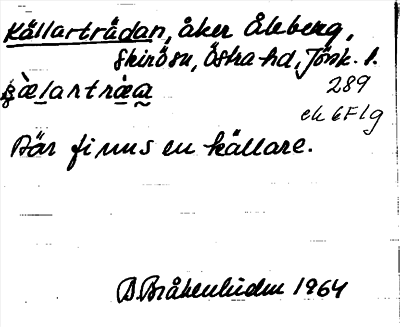 Källarträdan, åker Åleberg,
Skirösn, Östra hd, Jönk. l.
289
ek 6F1g
Där finns en källare.
B Bråkenhielm 1964